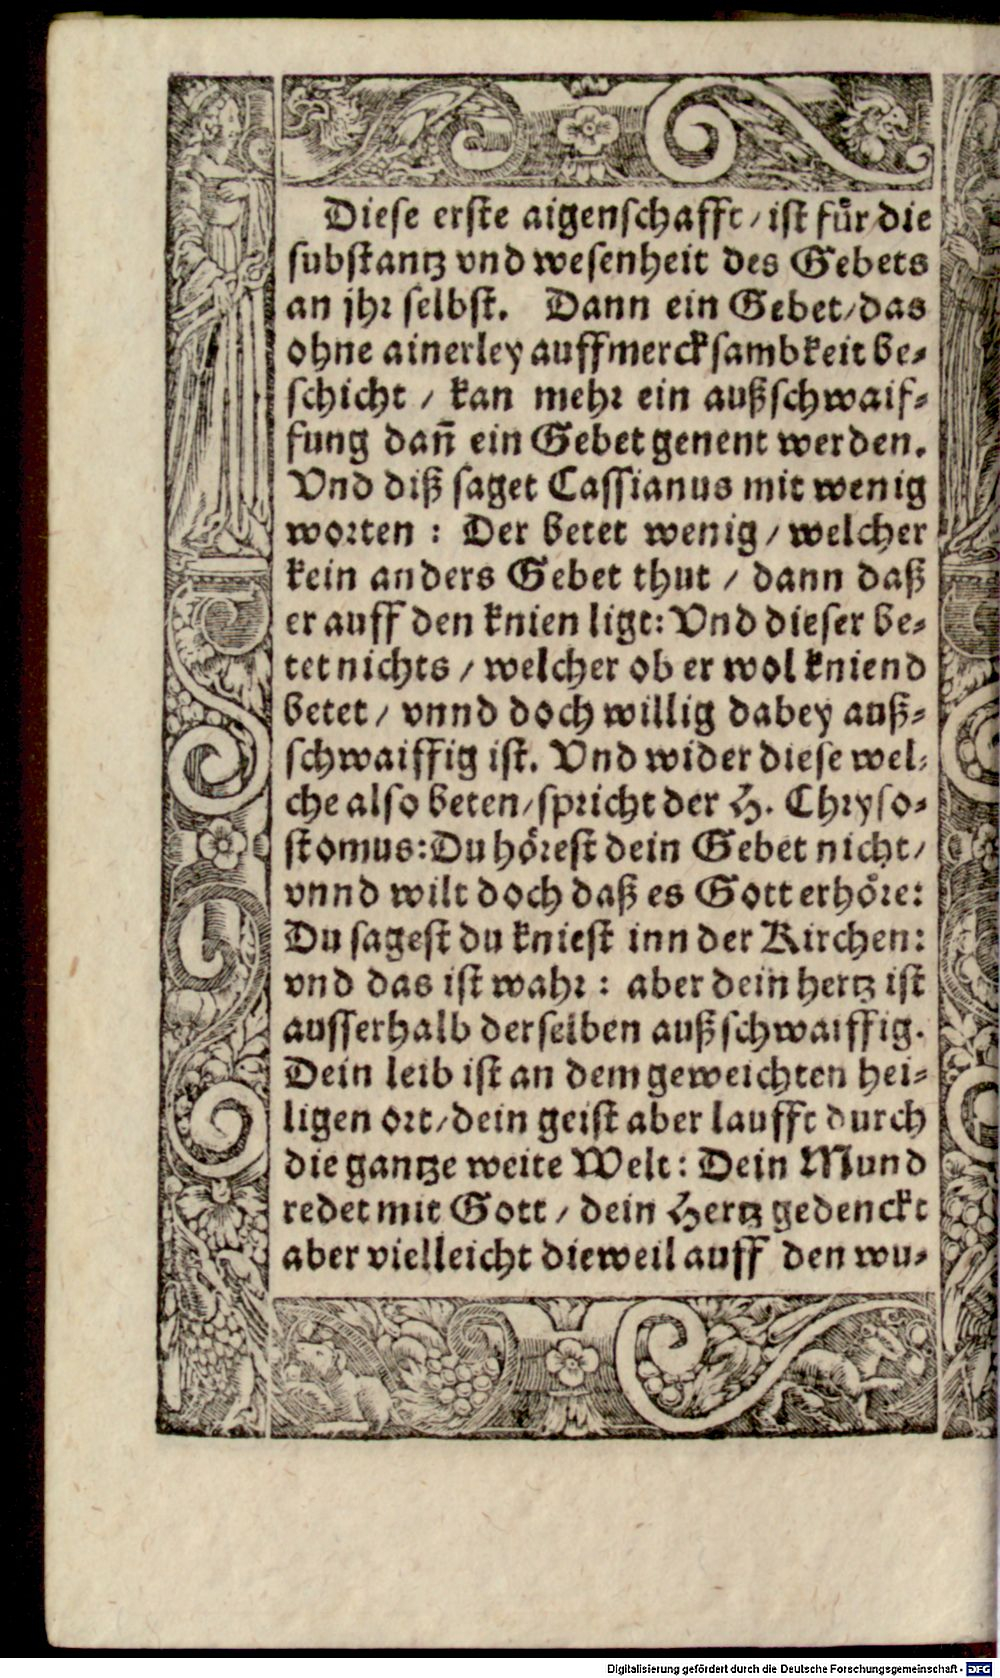 Diese erste aigenschafft / ist für die
substantz vnd wesenheit des Gebets
an jhr selbst. Dann ein Gebet / das
ohne ainerley auffmercksambkeit be-
schicht / kan mehr ein außschwaif-
fung dañ ein Gebet genent werden.
Vnd diß saget Cassianus mit wenig
worten : Der betet wenig / welcher
kein anders Gebet thut / dann daß
er auff den knien ligt: Vnd dieser be-
tet nichts / welcher ob er wol kniend
betet / vnnd doch willig dabey auß-
schwaiffig ist. Vnd wider diese wel-
che also beten / spricht der H. Chryso-
stomus: Du hörest dein Gebet nicht /
vnnd wilt doch daß es Gott erhöre:
Du sagest du kniest inn der Kirchen:
vnd das ist wahr : aber dein hertz ist
ausserhalb derselben außschwaiffig.
Dein leib ist an dem geweichten hei-
ligen ort / dein geist aber laufft durch
die gantze weite Welt: Dein Mund
redet mit Gott / dein Hertz gedenckt
aber vielleicht dieweil auff den wu-
Digitalisierung gefördert durch die Deutsche Forschungsgemeinschaft - DFG